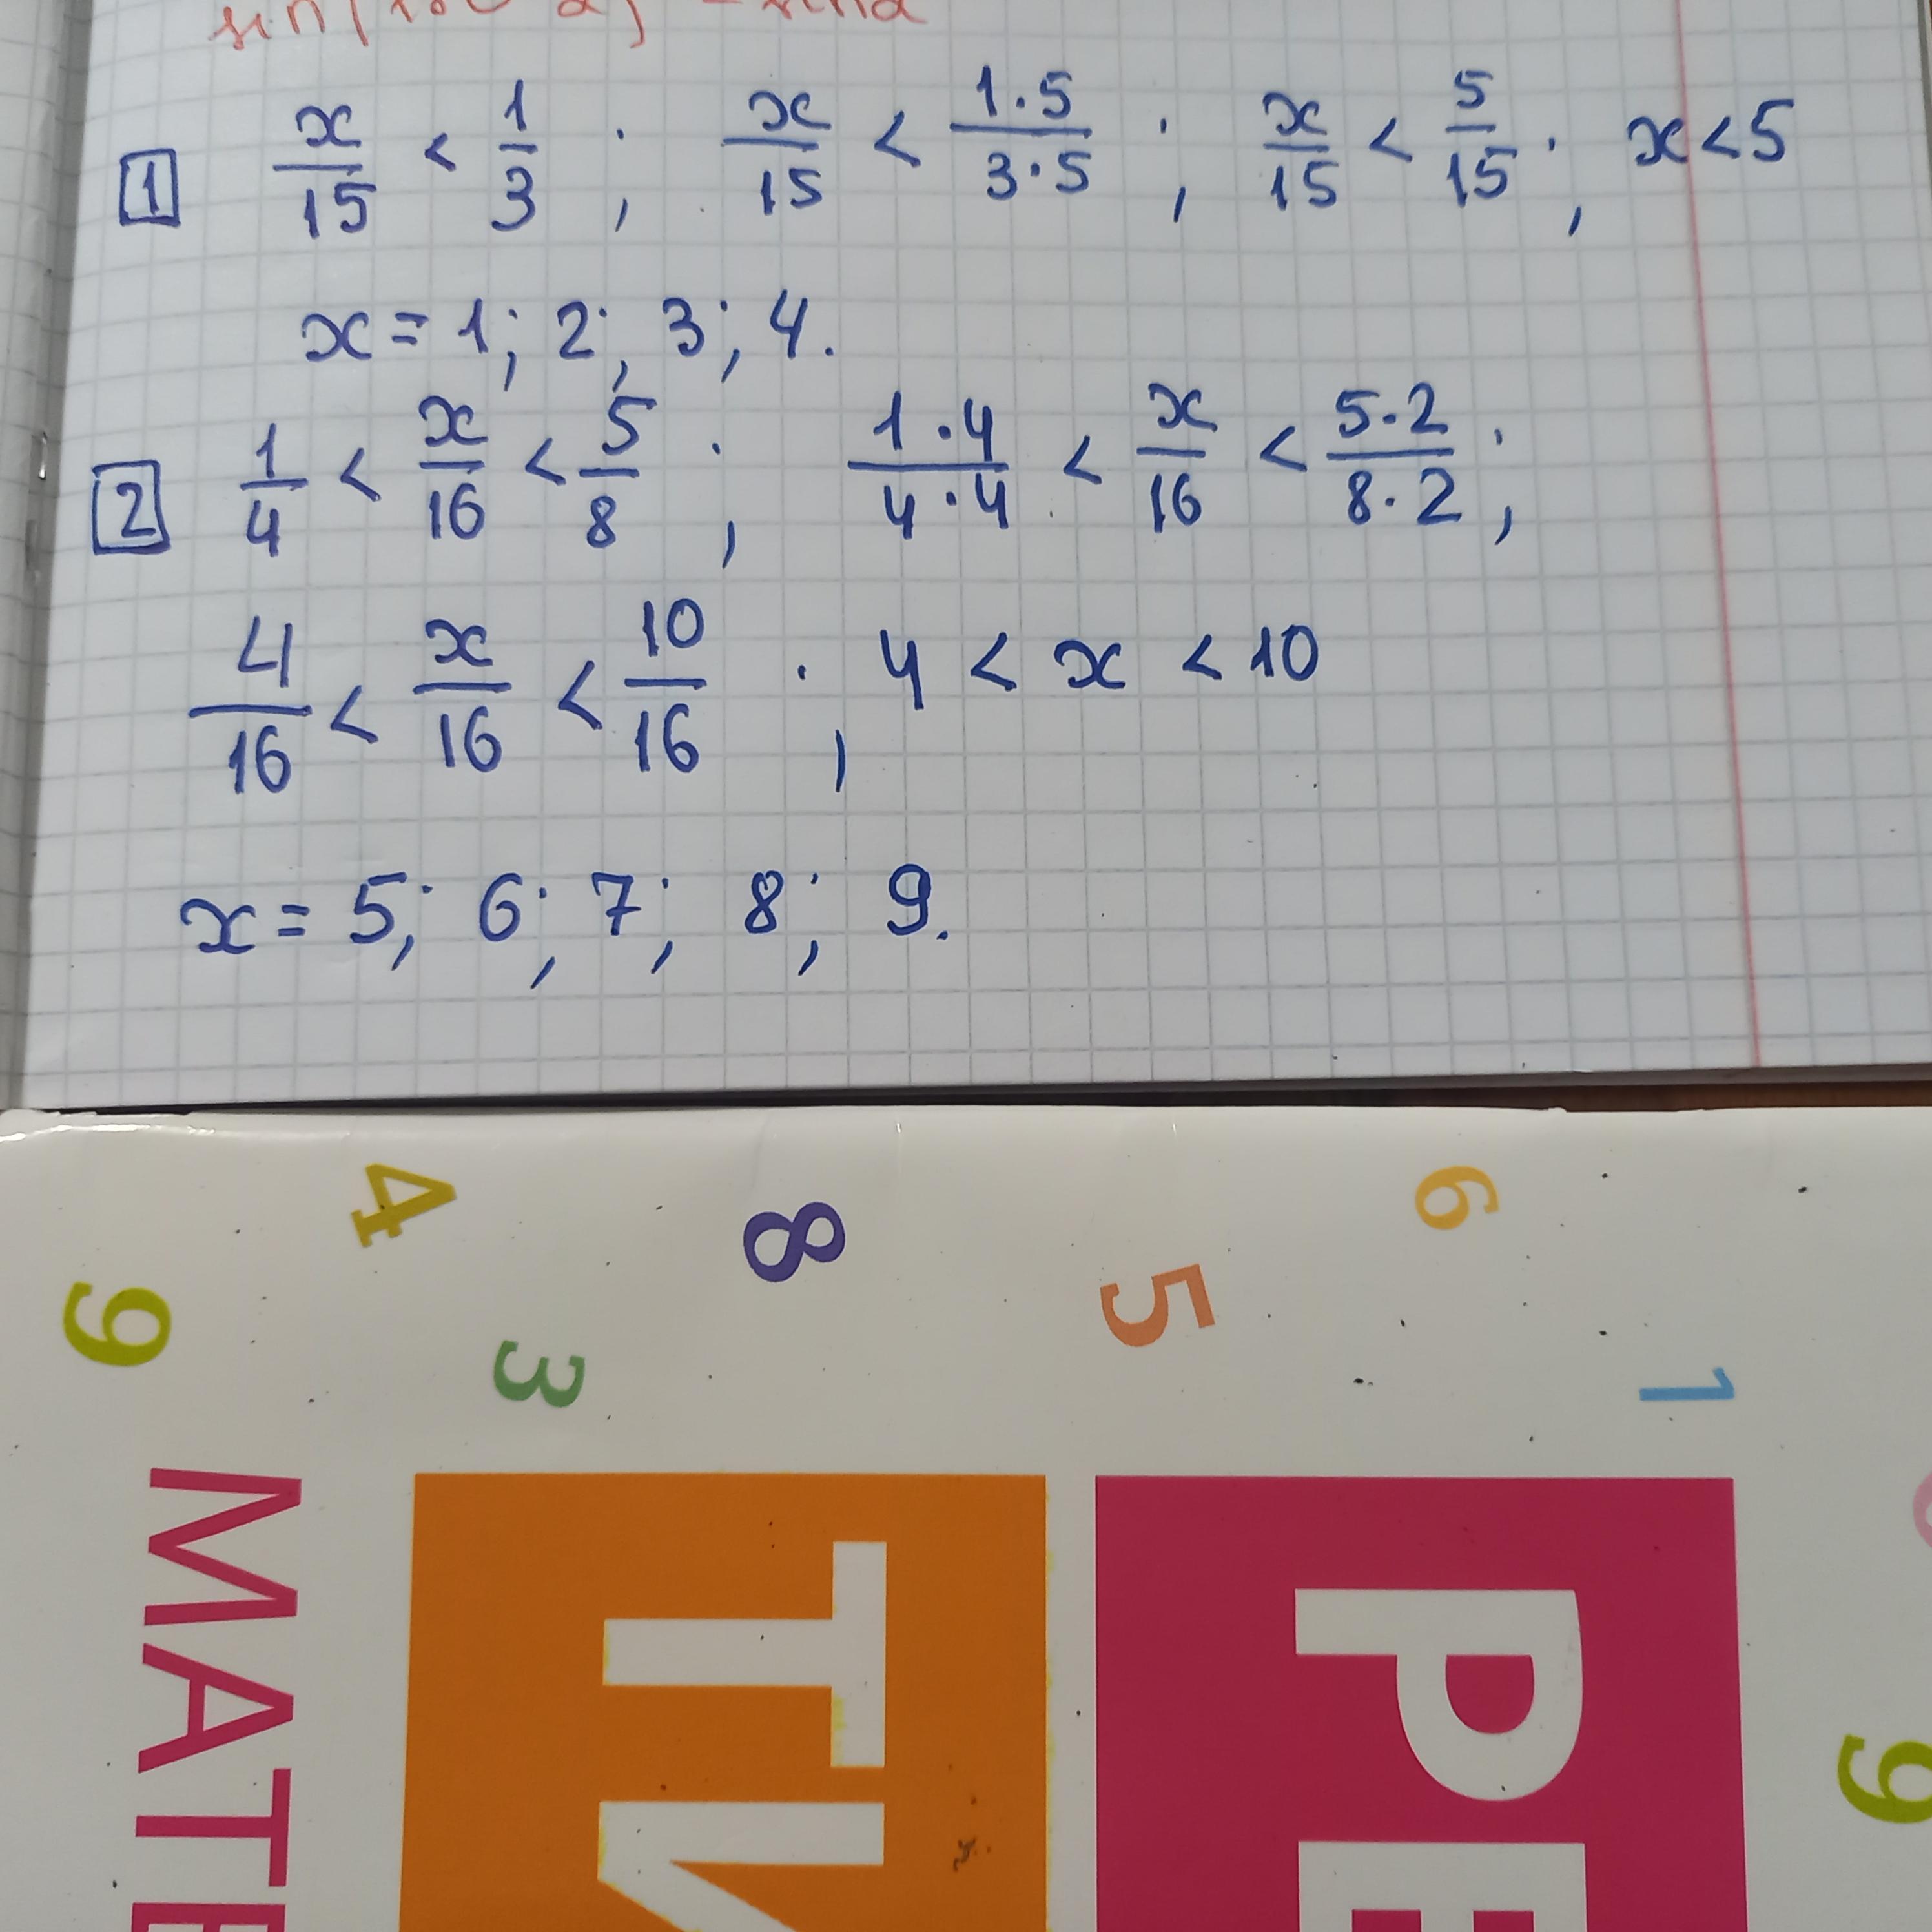 1 x/15 < 1/3 ; x/15 < 1·5/3·5 ; x/15 < 5/15 ; x<5
x = 1; 2; 3; 4.
2 1/4 < x/16 < 5/8 ; 1·4/4·4 < x/16 < 5·2/8·2 ;
4/16 < x/16 < 10/16 ; 4 < x < 10
x = 5; 6; 7; 8; 9.
4 8 6
9 3 5 1
МАТЕ
ТИ
РЕ
9